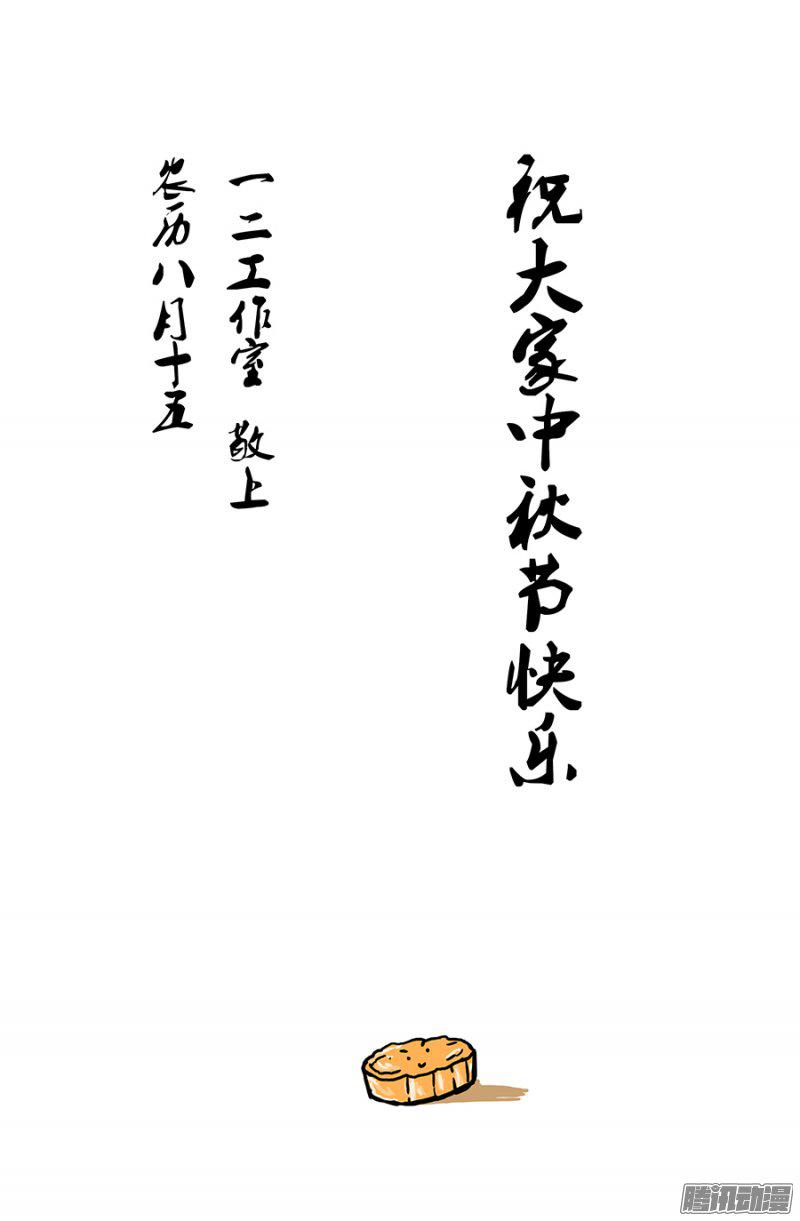 祝大家中秋节快乐
一二工作室 敬上
农历八月十五
腾讯动漫